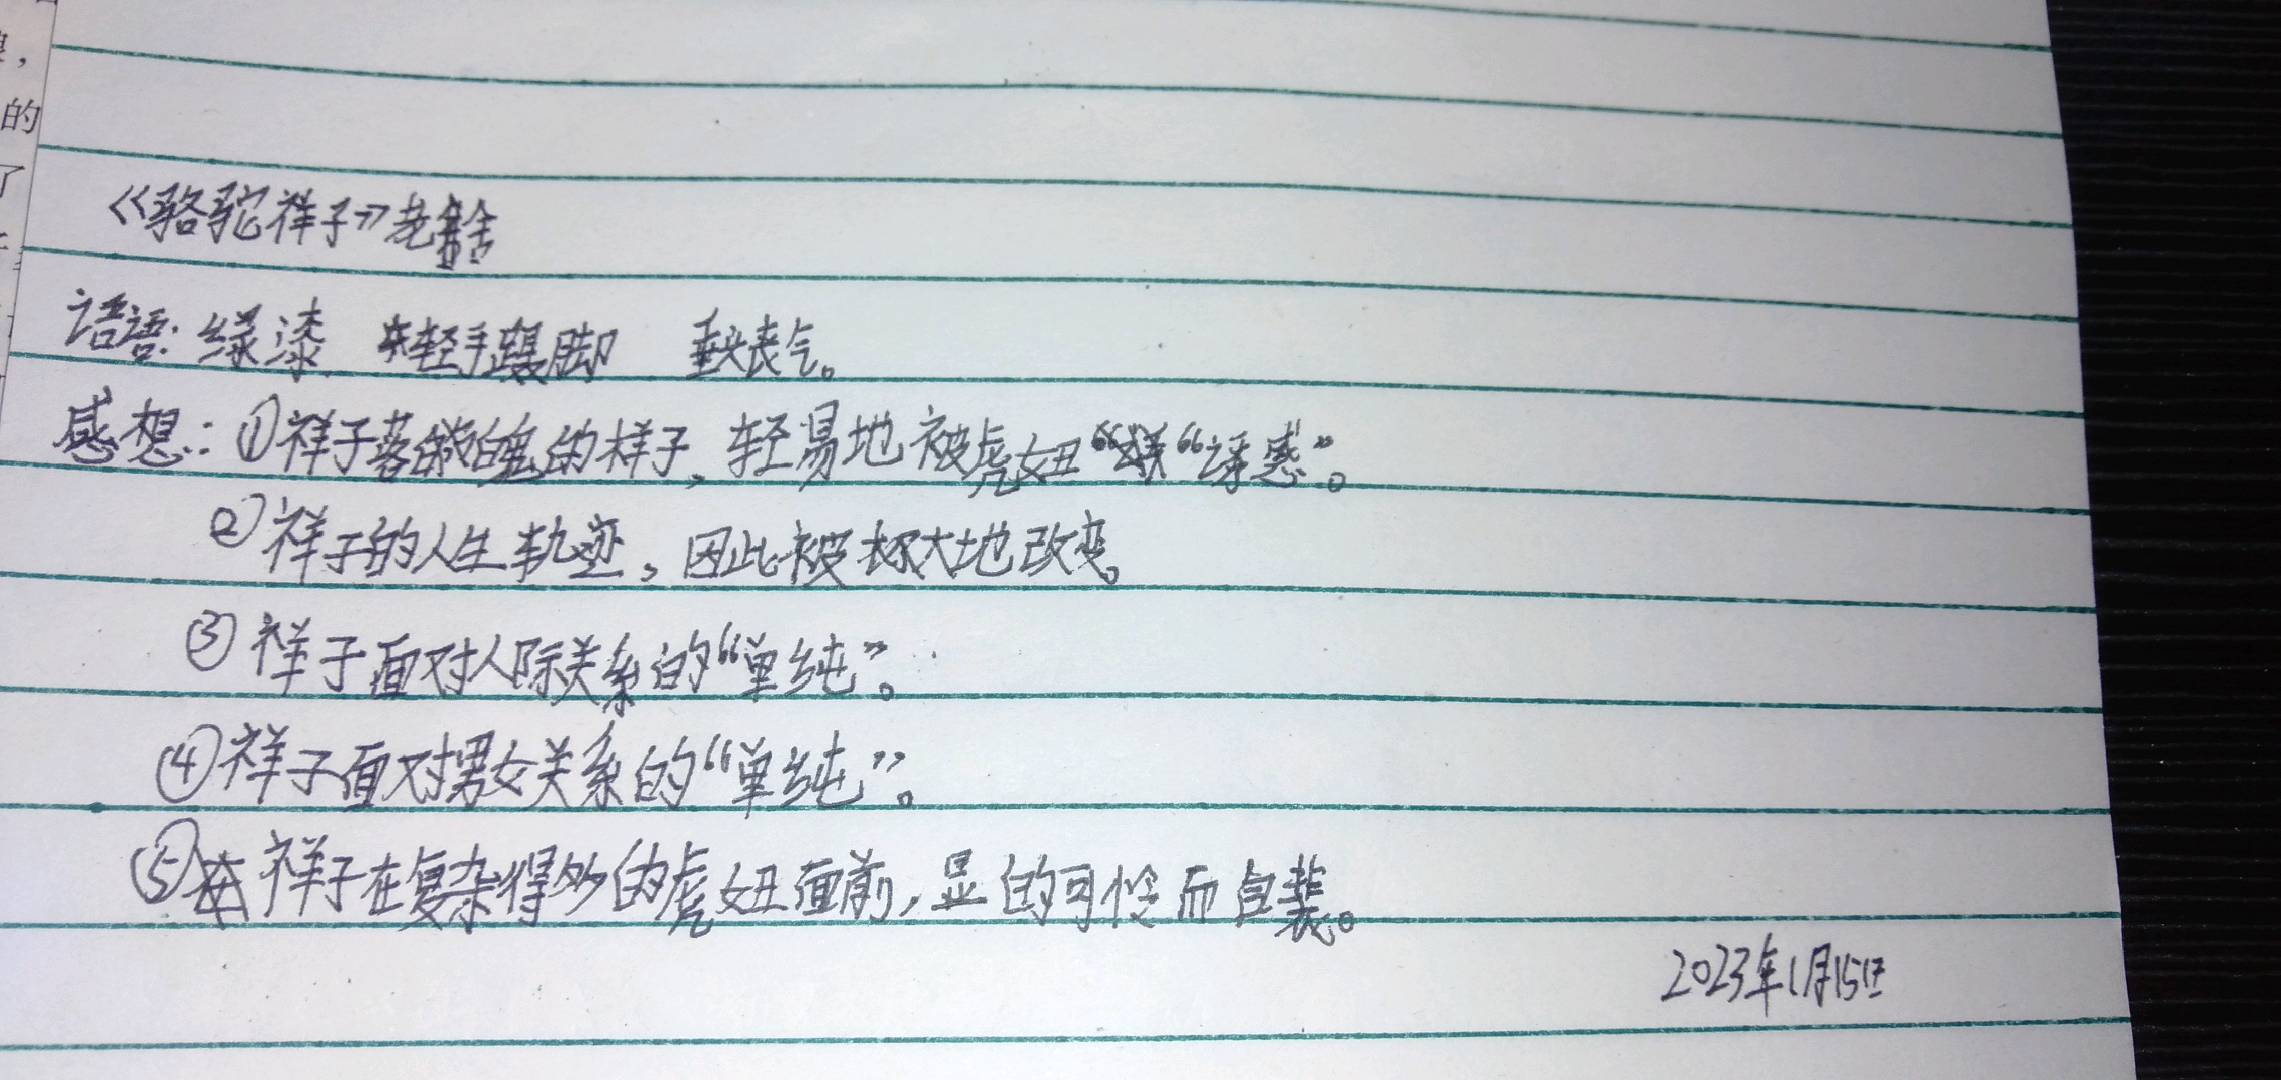 《骆驼祥子》老舍
语语:绿漆 轻手蹑脚 垂头丧气。
感想:①祥子落的样子,轻易地被虎妞“诱惑”。
②祥子的人生轨迹,因此被极大地改变。
③祥子面对人际关系的“单纯”。
④祥子面对男女关系的“单纯”。
⑤祥子在复杂得多的虎妞面前,显的可怜而自装。
2023年1月15日
的
了